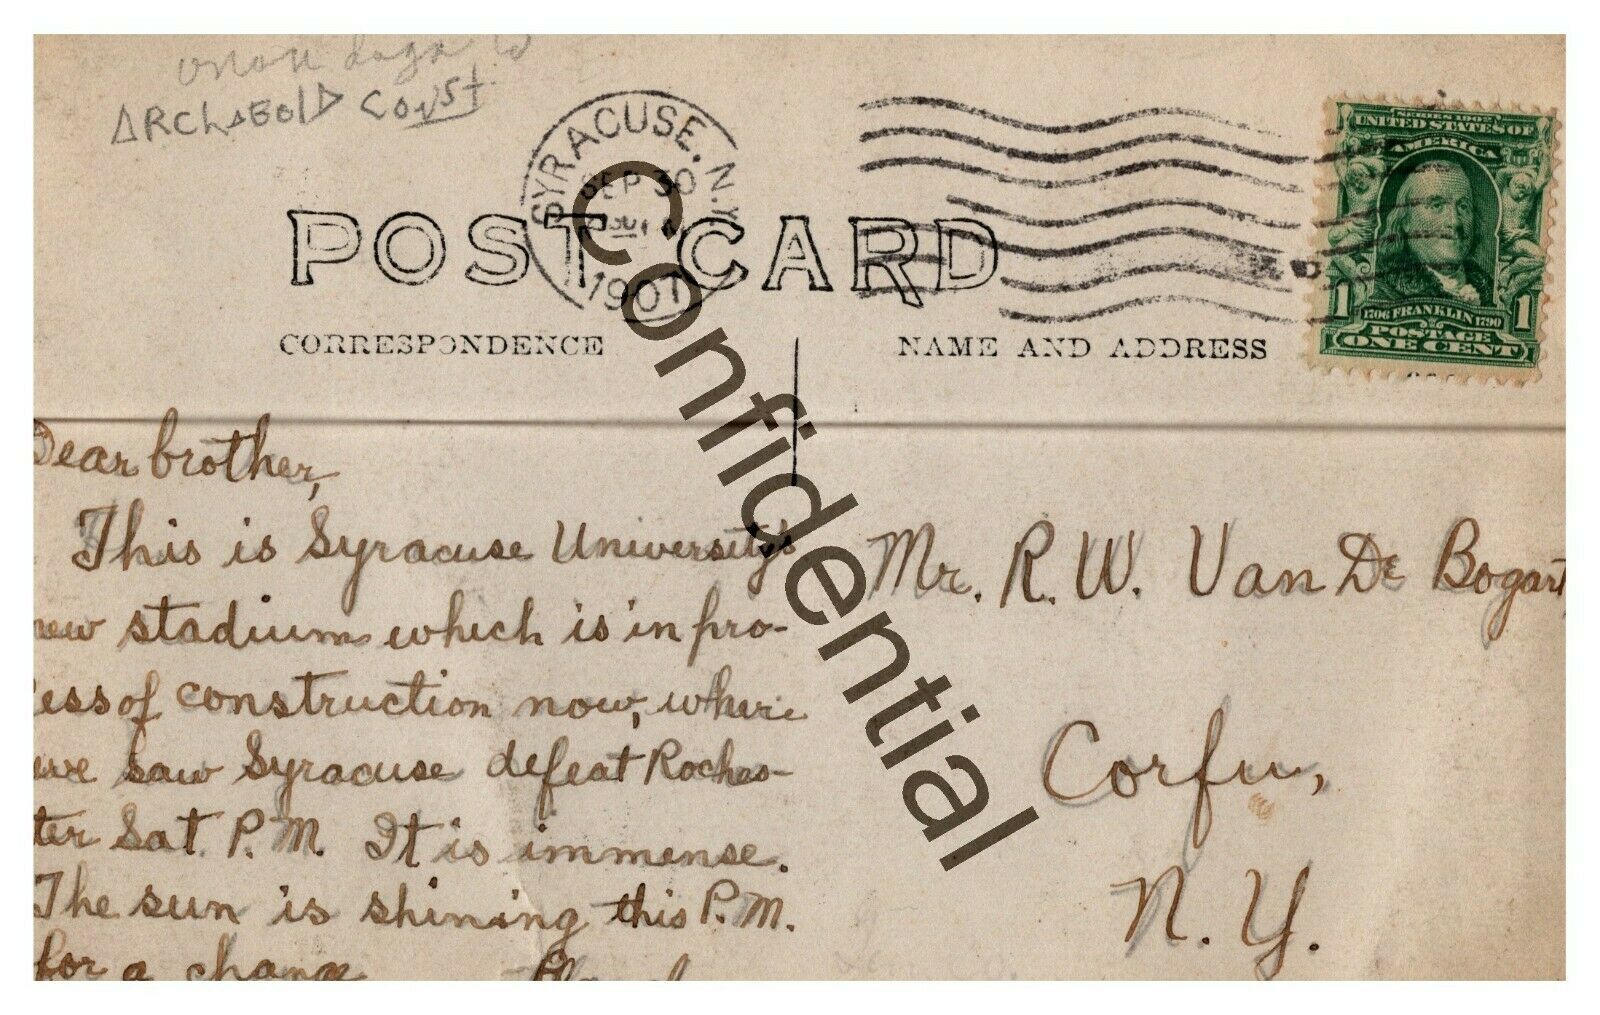 ARChABOlD CONST.
SYRACUSE, N.Y.
SEP 30
1907
POST CARD
CORRESPONDENCE
NAME AND ADDRESS
SERIES 1902
UNITED STATES OF
AMERICA
1 1
1706 FRANKLIN 1790
POSTAGE
ONE CENT
Confidential
Dear brother,
This is Syracuse University's
new stadium which is in pro-
cess of construction now, where
we saw Syracuse defeat Roches-
ter Sat. P.M. It is immense.
The sun is shining this P.M.
for a change
Mr. R. W. Van De Bogart,
Corfu,
N. Y.